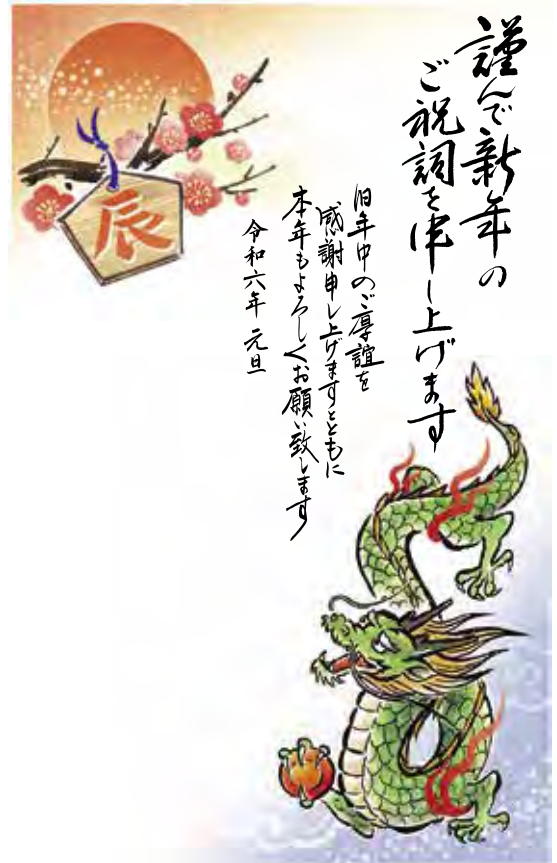 謹んで新年の
ご祝詞を申し上げます
旧年中のご厚誼を
感謝申し上げますとともに
本年もよろしくお願い致します
令和六年 元旦
辰